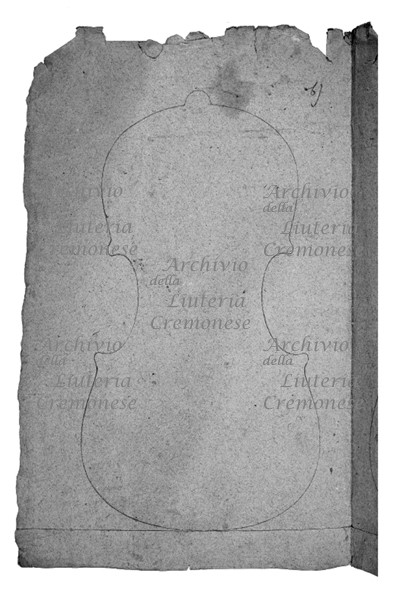 6)
Archivio
della
Liuteria
Cremonese
Archivio
della
Liuteria
Cremonese
Archivio
della
Liuteria
Cremonese
Archivio
della
Liuteria
Cremonese
Archivio
della
Liuteria
Cremonese